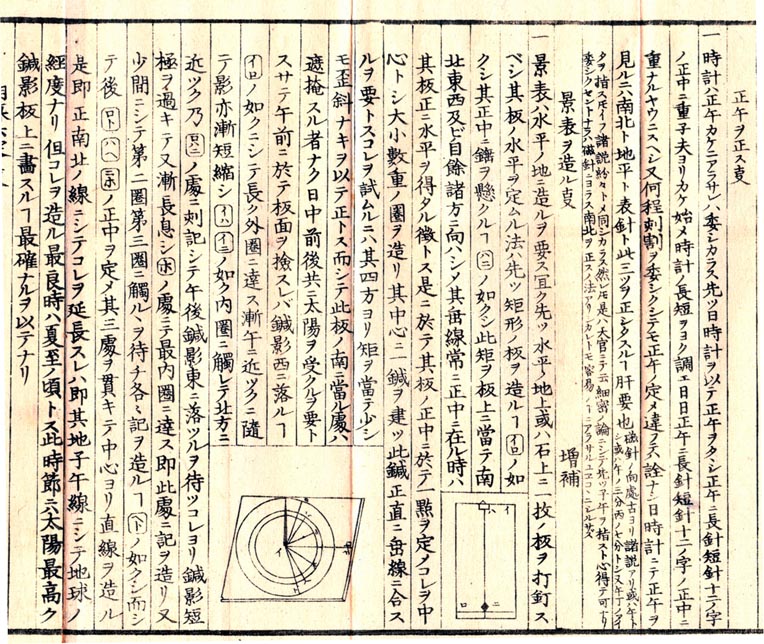 正午ヲ正ス㕝
一 時計ハ正午カケニアラサレハ委シカラス先ツ日時計ヲ以テ正午ヲタヽシ正午ニ長針短針十二ノ字
ノ正中ニ重子夫ヨリカケ始メ時計ノ長短ヲヨク調エ日日正午ニ長針短針十二ノ字ノ正中ニ
重ナルヤウニスヘシ又何程刺割ヲ委シクシテモ正午ノ定メ違フ詮ナシ日時計ニテ正午ヲ
見ルニハ南北ト地平ト表針ト此三ツヲ正シクスルヿ肝要也 磁針ノ向處古ヨリ諸説アリ或ハ午
景表ヲ造ル㕝 増補
一 景表ハ水平ノ地ニ造ルヲ要ス宜ク先ツ水平ノ地上或ハ石上ニ一枚ノ板ヲ打釘ス
ベシ其板ノ水平ヲ定ムル法ハ先ツ矩形ノ板ヲ造ルヿイロノ如
クシ其正中ニ錘ヲ懸クルヿハニノ如クシ此矩ヲ板上ニ當テ南
北東西及ビ自餘諸方ニ向ハシメ其垂線常ニ正中ニ在ル時ハ
其板正ニ水平ヲ得タル徴トス是ニ於テ其板ノ正中ニ於テ一點ヲ定メコレヲ中
心トシ大小數重ノ圏ヲ造リ其中心ニ一鍼ヲ建ツ此鍼正直ニ垂線ニ合ス
ルヲ要トスコレヲ試ムルニハ其四方ヨリ矩ヲ當テ少シ
モ歪斜ナキヲ以テ正トス而シテ此板ノ南ニ當ル處ハ
遮掩スル者ナク日中前後共ニ太陽ヲ受クルヲ要ト
スサテ午前ニ於テ板面ヲ撿スレバ鍼影西ニ落ルヿ
イロノ如クニシテ長ク外圏ニ達ス漸午ニ近ツクニ隨
テ影亦漸短縮シイハイニノ如ク内圏ニ觸レテ北方ニ
近ツク乃ロハニノ處ニ刺記シテ午後鍼影東ニ落ツルヲ待ツコレヨリ鍼影短
極ヲ過キテ又漸長息シホノ處ニテ最内圏ニ達ス即此處ニ記ヲ造リ又
少間ニシテ第二圏第三圏ニ觸ルヽヲ待チ各〻記ヲ造ルヿヘトノ如クシ而シ
テ後ロトハヘニホノ正中ヲ定メ其三處ヲ貫キテ中心ヨリ直線ヲ造ル
是即正南北ノ線ニシテコレヲ延長スレハ即其地子午線ニシテ地球ノ
經度ナリ但コレヲ造ル最良時ハ夏至ノ頃トス此時節ニハ太陽最高ク
鍼影板上ニ畵スルヿ最確ナルヲ以テナリ